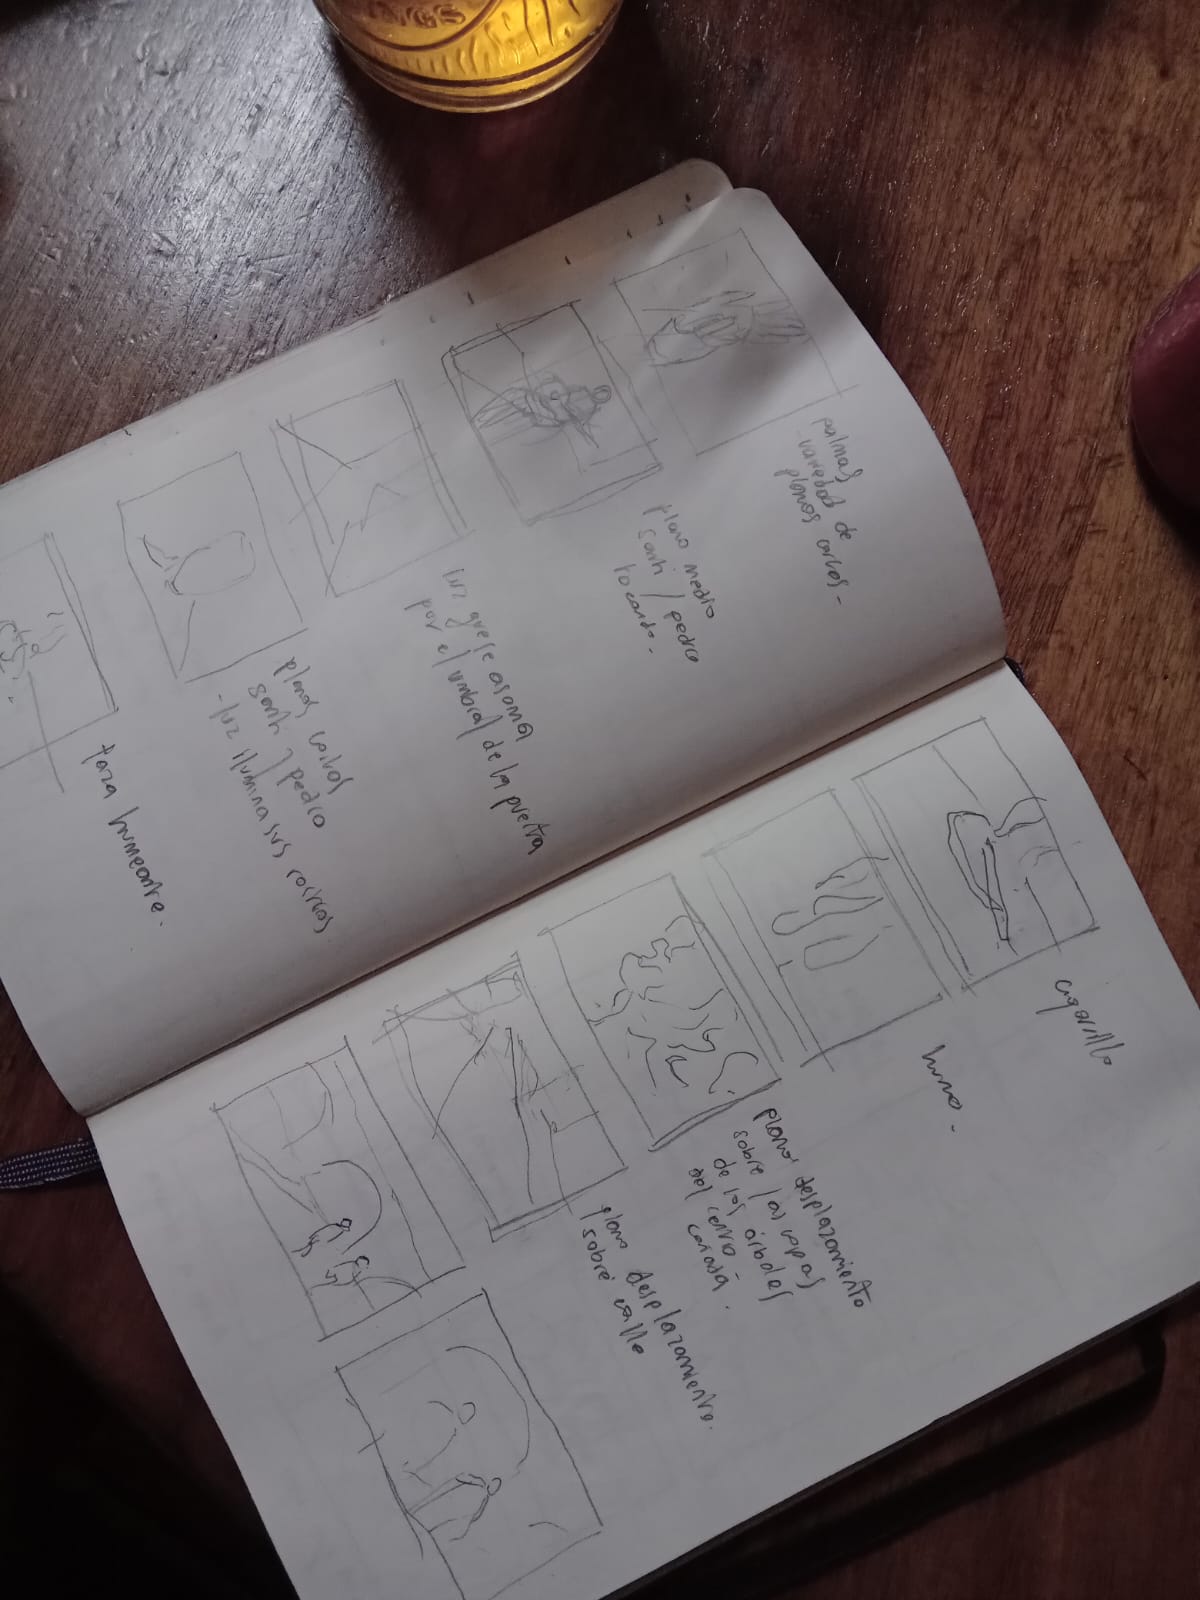 palmas
variedad de
planos cortos -
plano medio
santi / pedro
tocando -
luz
asoma
por el umbral de la puerta
planos cortos
santi y pedro
- luz ilumina sus rostros
taza humeante.
cigarrillo
humo -
plano desplazamiento
sobre las copas
de los árboles
del cerro -
plano desplazamiento.
sobre calle